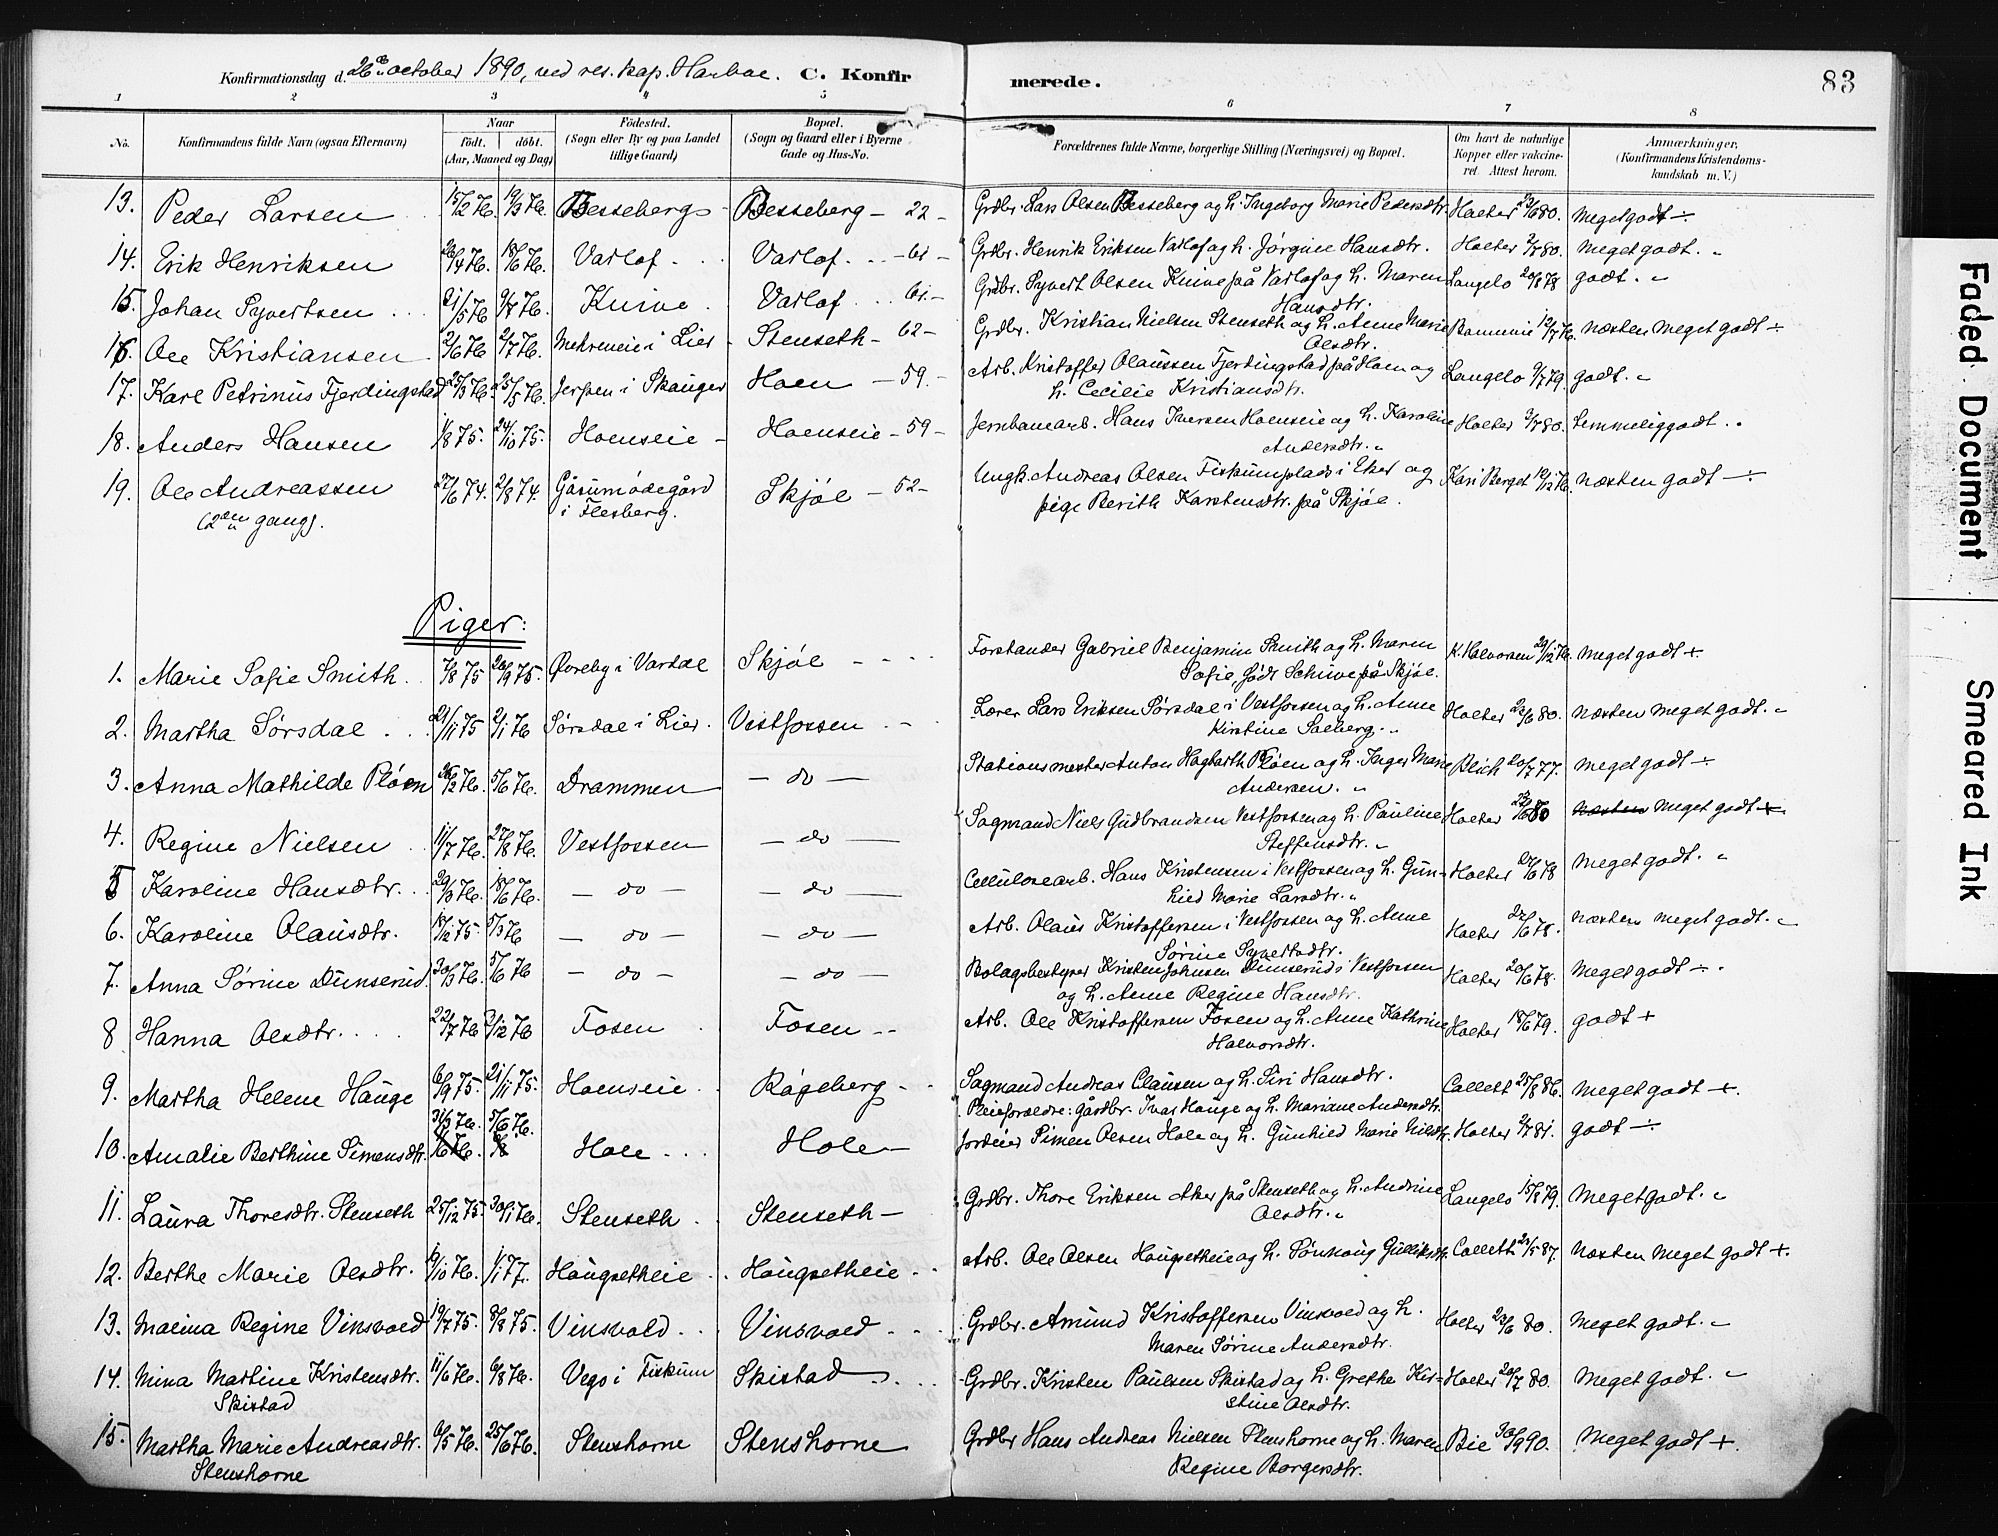 Konfirmationsdag d. 26de october 1890, ved res. kap. Harboe. C. Konfirmerede. 83
1 2 3 4 5 6 7 8
No. Konfirmandens fulde Navn (ogsaa Efternavn) Naar født. døbt. (Aar, Maaned og Dag) Fødested. (Sogn eller By og paa Landet tillige Gaard) Bopæl. (Sogn og Gaard eller i Byerne Gade og Hus-No. Forældrenes fulde Navne, borgerlige Stilling (Næringsvei) og Bopæl. Om havt de naturlige Kopper eller vakcineret. Attest herom. Anmærkninger. (Konfirmandens Kristendomskundskab m. V.)
13. Peder Larsen 15/2 76. 19/3 76. Besseberg Besseberg – 22 – Grdbr. Lars Olsen Besseberg og h. Ingeborg Marie Pedersdtr. Holter 23/6 80. Meget godt ÷
14. Erik Henriksen 26/4 76. 18/6 76. Varlof Varlof. – 61 – Grdbr. Henrik Eriksen Varlof og h. Jørgine Hansdtr. Holter 2/7 80. Meget godt.
15. Johan Syvertsen 21/5 76 9/7 76. Knive Varlof 61 – Grdbr. Syvert Olsen Knive på Varlof og h. Maren Hansdtr. Langelo 20/8 78 godt.
16. Ole Kristiansen 2/6 76 2/7 76. i Lier Stenseth – 62 – Grdbr. Kristian Nielsen Stenseth og h. Anne Marie Olsdtr. 12/7 76. næsten meget godt ÷
17. Karl Petrinus Fjerdingstad 25/3 76. 25/5 76. Jerpen i Skauger Hoen – 59. – Arb. Kristoffer Olaussen Fjerdingstad på Hoen og h. Cecilie Kristiansdtr. Langelo 9/7 79. godt.
18. Anders Hansen 1/8 75. 24/10 75. Hoenseie – Hoenseie – 59 – Jernbanearb. Hans Iversen Hoenseie og h. Karoline Andersdtr. Holter 3/7 80. temmelig godt.
19. Ole Andreassen (2den gang). 27/6 74. 2/8 74. Gåsumødegård i Flesberg. Skjøl – 52 – Ungk. Andreas Olsen Fiskumplads i Eker og pige Berith Karstensdtr. på Skjøl. Kari Berget 12/12 76. næsten godt ÷
Piger:
1. Marie Sofie Smith. 7/8 75 26/9 75. Øvreby i Vardal Skjøl Forstander Gabriel Benjamin Smith og h. Maren Sofie, født Schive på Skjøl. K. Halvorsen 29/12 76. Meget godt +
2. Martha Sørsdal 21/11 75 2/1 76 Sørsdal i Lier. Vestfossen Lærer Lars Eriksen Sørsdal i Vestfossen og h. Anne Kirstine Solberg. Holter 23/6 80. næsten meget godt.
3. Anna Mathilde Pløen 26/2 76. 5/6 76. Drammen – do – Stationsmester Anton Hagbarth Pløen og h. Inger Marie Andersen. Blich 20/7 77. Meget godt ÷
4. Regine Nielsen 11/7 76. 27/8 76. Vestfossen – do – Sagmand Niels Gudbrandsen Vestfossen og h. Pauline Steffensdtr. Holter 23/6 80 næsten Meget godt +
5 Karoline Hansdtr. 29/3 76. 18/6 76. – do – – do – Cellulosearb. Hans Kristensen i Vestfossen og h. Gunhild Marie Larsdtr. Holter 27/6 78 Meget godt.
6. Karoline Olausdtr. 18/12 75. 5/3 76 – do – – do – Arb. Olaus Kristoffersen i Vestfossen og h. Anne Sørine Syvertsdtr. Holter 27/6 78. Næsten meget godt.
7. Anna Sørine Dunserud. 30/3 76. 5/6 76 – do – – do – Bolagsbestyrer Kristen Johnsen Dunserud i Vestfossen og h. Anne Regine Hansdtr. Holter 20/6 78. Meget godt ÷
8 Hanna Olsdtr. 22/7 76 3/12 76 Fosen Fosen Arb. Ole Kristoffersen Fosen og h. Anne Kathrine Halvorsdtr. Holter 18/6 79. godt +
9. Martha Helene Hauge 6/9 75. 21/11 75. Hoenseie Røgeberg Sagmand Andreas Clausen og h. Siri Hansdtr. Pleieforældre: Gårdbr. Ivar Hauge og h. Mariane Andersdtr. Collett 25/8 86. Meget godt +
10. Amalie Berthine Simensdtr. 31/3 76. 5/6 76. Hole Hole – Jordeier Simen Olsen Hole og h. Gunhild Marie Nilsdtr. Holter 2/7 81. godt ÷
11. Laura Thoresdtr. Stenseth 25/12 75. 30/1 76. Stenseth Stenseth – Grdbr. Thore Eriksen Aker på Stenseth og h. Andrine Olsdtr. Langelo 15/8 79. Meget godt.
12. Berthe Marie Olsdtr. 19/10 76. 1/1 77. Haugsetheie Haugsetheie Arb. Ole Olsen Haugsetheie og h. Sønnaug Gulliksdtr. Collett 23/5 87. Næsten meget godt +
13. Malina Regine Vinsvold 19/7 75. 8/8 75. Vinsvold Vinsvold Grdbr. Amund Kristoffersen Vinsvold og h. Maren Sørine Andersdtr. Holter 23/6 80. Meget godt.
14. Mina Martine Kristensdtr. Skistad 11/6 76. 6/8 76. Vego i Fiskum Skistad Grdbr. Kristen Paulsen Skistad og h. Grethe Kirstine Olsdtr. Holter 20/7 80. Meget godt.
15. Martha Marie Andreasdtr. Stenshorne 6/5 76. 25/6 76. Stenshorne Stenshorne Grdbr. Hans Andreas Nielsen Stenshorne og h. Maren Regine Borgersdtr. Bie 30/9 90. Meget godt +
Faded Document
Smeared Ink